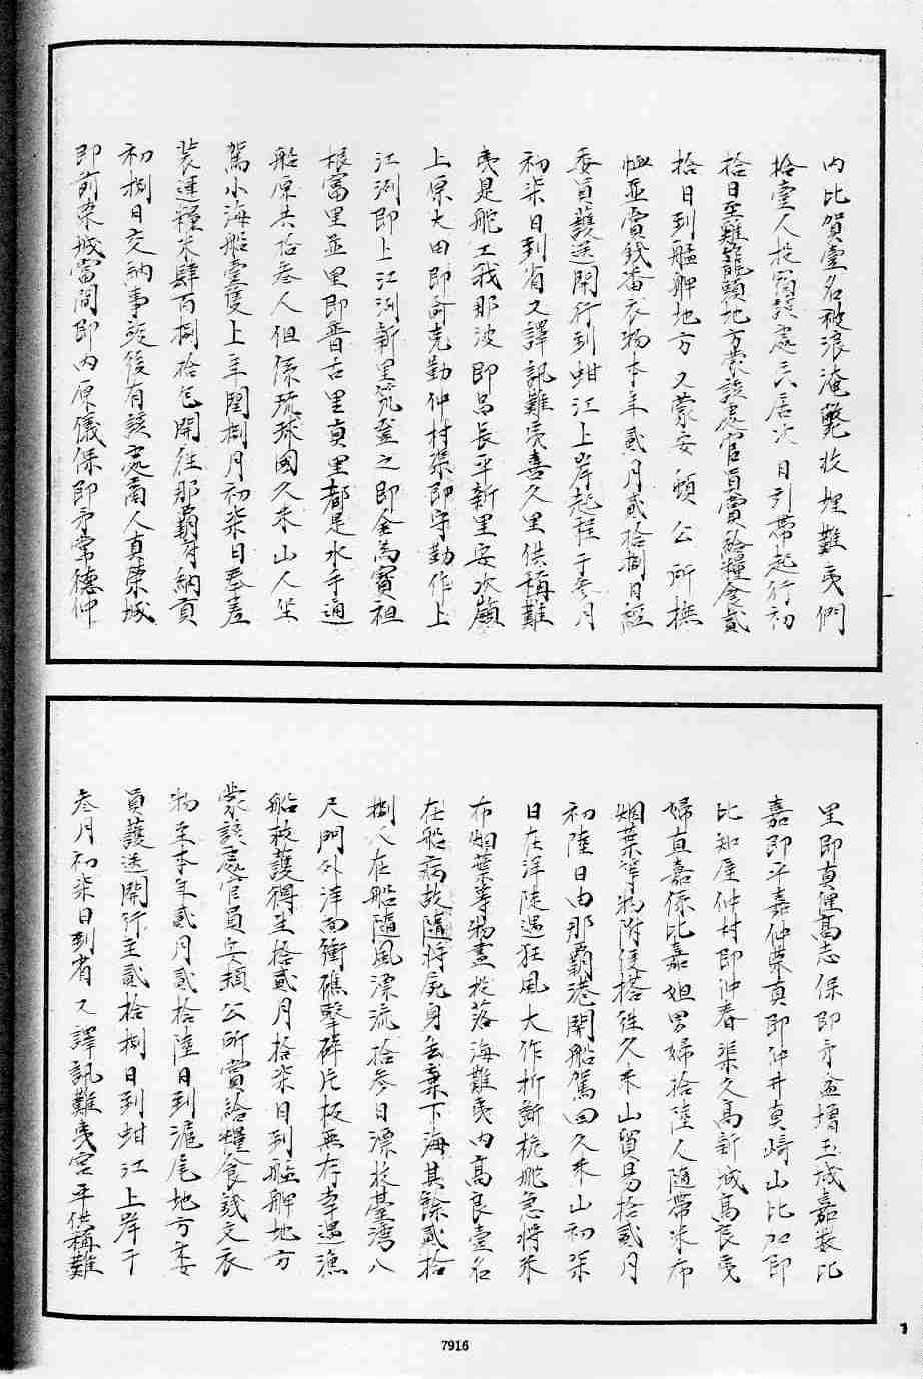 內比賀壹名被浪淹斃收埋難夷們
拾壹人投宿該處六居次日引帶起行初
拾日至雞籠頭地方蒙該處官員賞給糧食貳
拾日到艋舺地方又蒙安頓公所撫
恤並賞錢番衣物本年貳月貳拾捌日經
委員護送開行到蚶江上岸起程于叁月
初柒日到省又譯訊難夷喜久里供稱難
夷是舵工我那波即昌長平新里安次嶺
上原大田即俞克勤仲村渠即守勤作上
江洌即上江洌新里筑登之即金為寶祖
根富里並里即普古里真里都是水手通
船原共拾叁人俱係琉球國久米山人坐
駕小海船壹隻上年閏捌月初柒日奉差
裝運糧米肆百捌拾包開往那霸府納貢
初捌日交納事竣後有該處商人真榮城
即前東城當間即內原儀保即弟常德仲
里即真俚高志保即弟盆增玉城嘉數比
嘉即平嘉仲榮真即仲井真崎山比加即
比知屋仲村即仲春渠久高新城高良夷
婦真嘉係比嘉姐男婦拾陸人隨帶米布
烟葉等物附便搭往久米山貿易拾貳月
初陸日由那霸港開船駕回久米山初柒
日在洋陡遇狂風大作折斷桅舵急將米
布烟葉等物盡投落海難夷內高良壹名
在船病故隨將屍身丟棄下海其餘貳拾
捌人在船隨風漂流拾叁日漂收臺灣八
尺門外洋面衝礁擊碎片板無存幸遇漁
船救護得生拾貳月拾柒日到艋舺地方
蒙該處官員安頓公所賞給糧食錢文衣
物至本年貳月貳拾陸日到滬尾地方委
員護送開行至貳拾捌日到蚶江上岸于
叁月初柒日到省又譯訊難夷宮平供稱難
7916